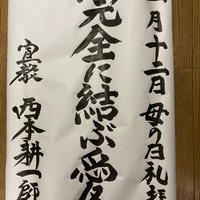 月十二日 母の日礼拝
完全に結ぶ愛
宣教 西本耕一郎